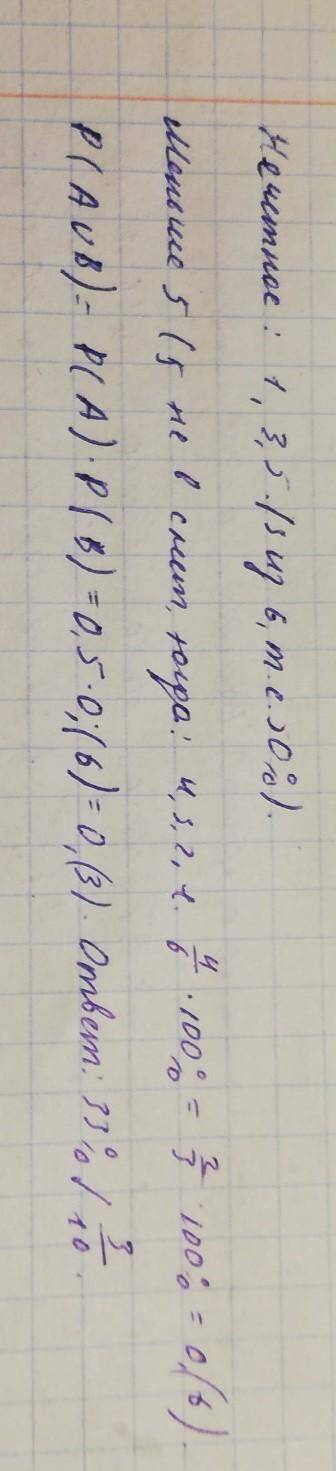 Нечетное: 1, 3, 5. (3 из 6, т.е. 50%).
Меньше 5 (5 не в счит, тогда: 4, 3, 2, 1. 4/6 · 100% = 2/3 · 100% = 0,(6).
P(A∪B) = P(A) · P(B) = 0,5 · 0,(6) = 0,(3). Ответ: 33% / 3/10.